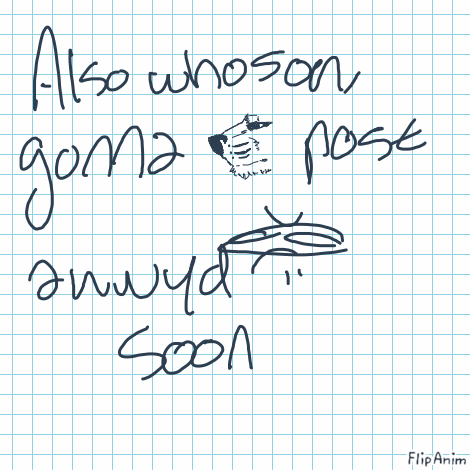 Also whoson
gonna post
awwyd
soon
FlipAnim